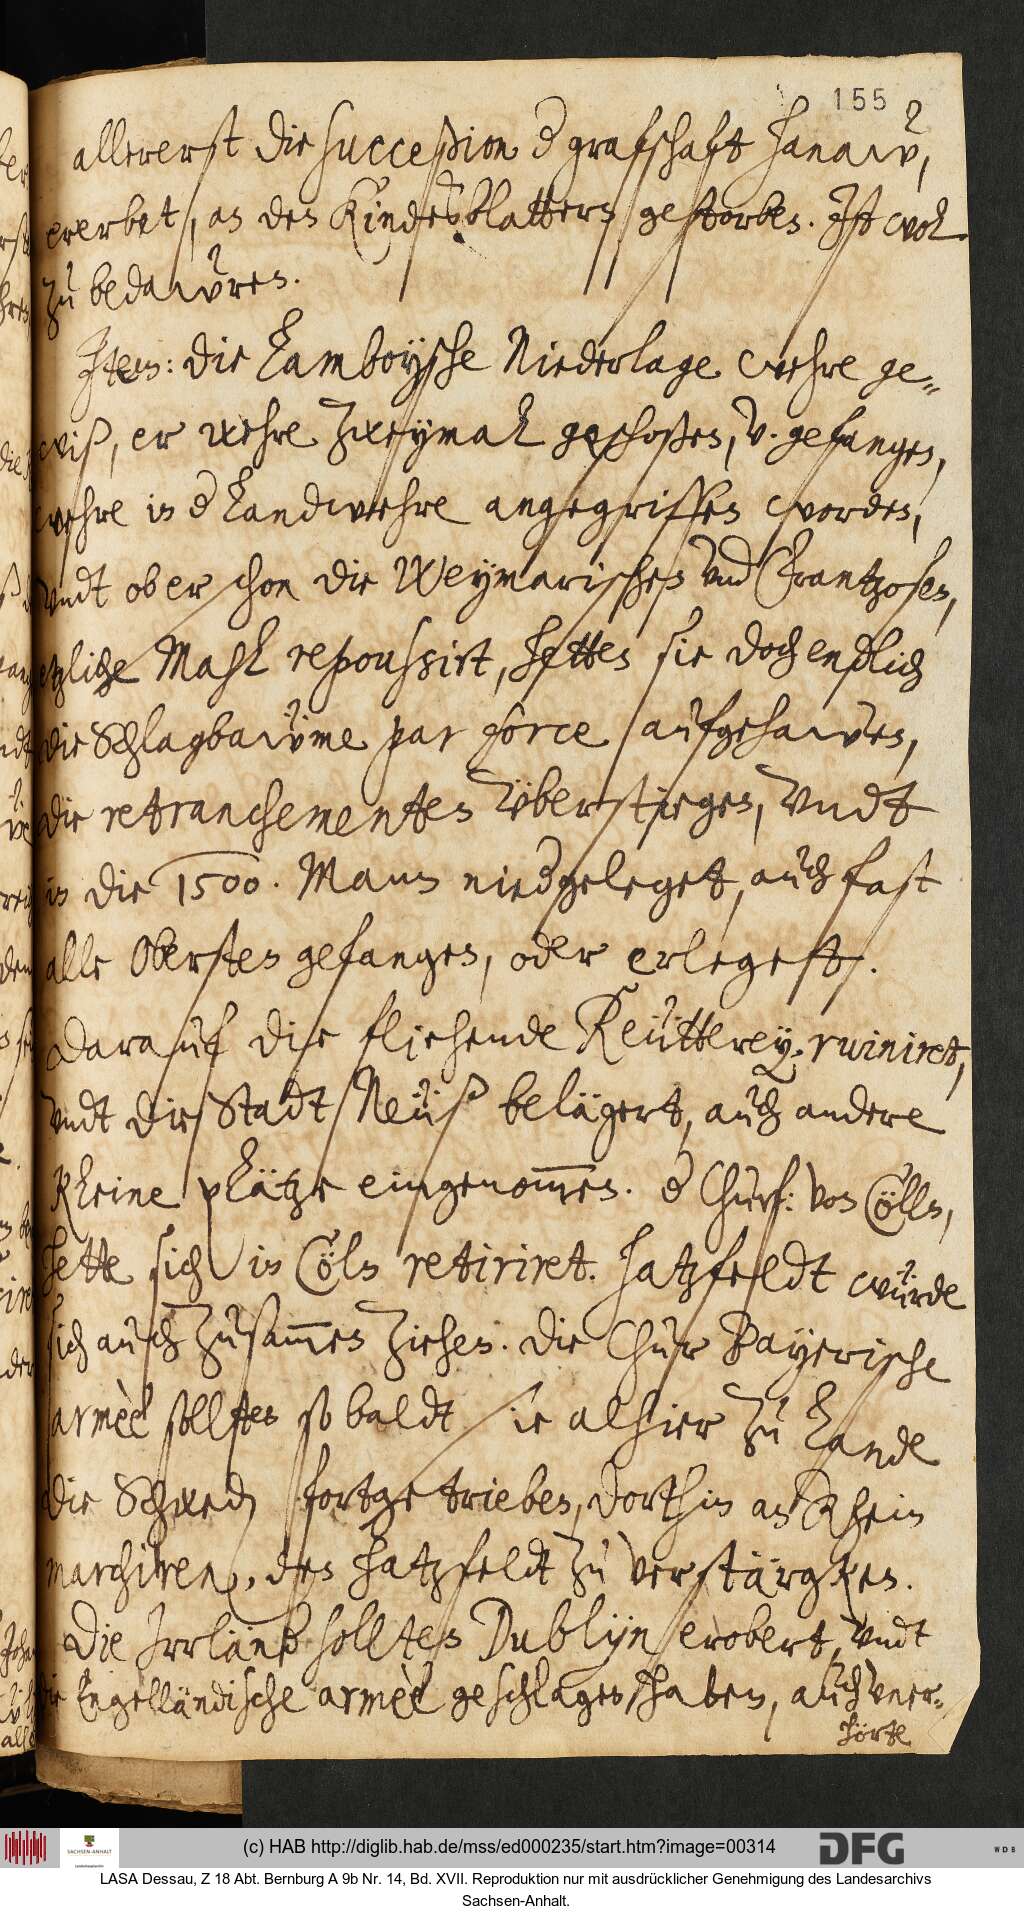 155
allererst die succession d grafschafft Hanaw,
ererbet, an den Kindesblattern gestorben. Ist wol
zu bedawren.
Item: die Lamboysche Niederlage wehre ge=
wiß, er wehre zweymal geschoßen, v. gefangen,
wehre in d Landwehre angegriffen worden,
vndt ob er schon die Weymarischen vnd Frantzosen,
etzliche Mahl repoussirt, hetten sie doch endlich
die Schlagbawme par force aufgehawen,
die retranchementen vberstiegen, vndt
in die 1500. Mann niedgeleget, auch fast
alle Obersten gefangen, oder erlegett.
Darauf die fliehende Reutterey, ruiniret,
vndt die Stadt Neüß belägert, auch andere
kleine plätze eingenom̅en. d Churf: von Cölln,
hette sich in Cöln retiriret. Hatzfeldt würde
sich auch zusam̅en ziehen. Die Chur Bayerische
armèè sollten so baldt sie alhier zu Lande
die Schwed fortgetrieben, dorthin an Rhein
marchiren, den Hatzfeldt zu verstärgken.
Die Irrländ sollten Dublyn erobert, vndt
die Engelländische armèè geschlagen haben, auch vner-
hörte
(c) HAB http://diglib.hab.de/mss/ed000235/start.htm?image=00314
SACHSEN-ANHALT
DFG
WDB
LASA Dessau, Z 18 Abt. Bernburg A 9b Nr. 14, Bd. XVII. Reproduktion nur mit ausdrücklicher Genehmigung des Landesarchivs
Sachsen-Anhalt.